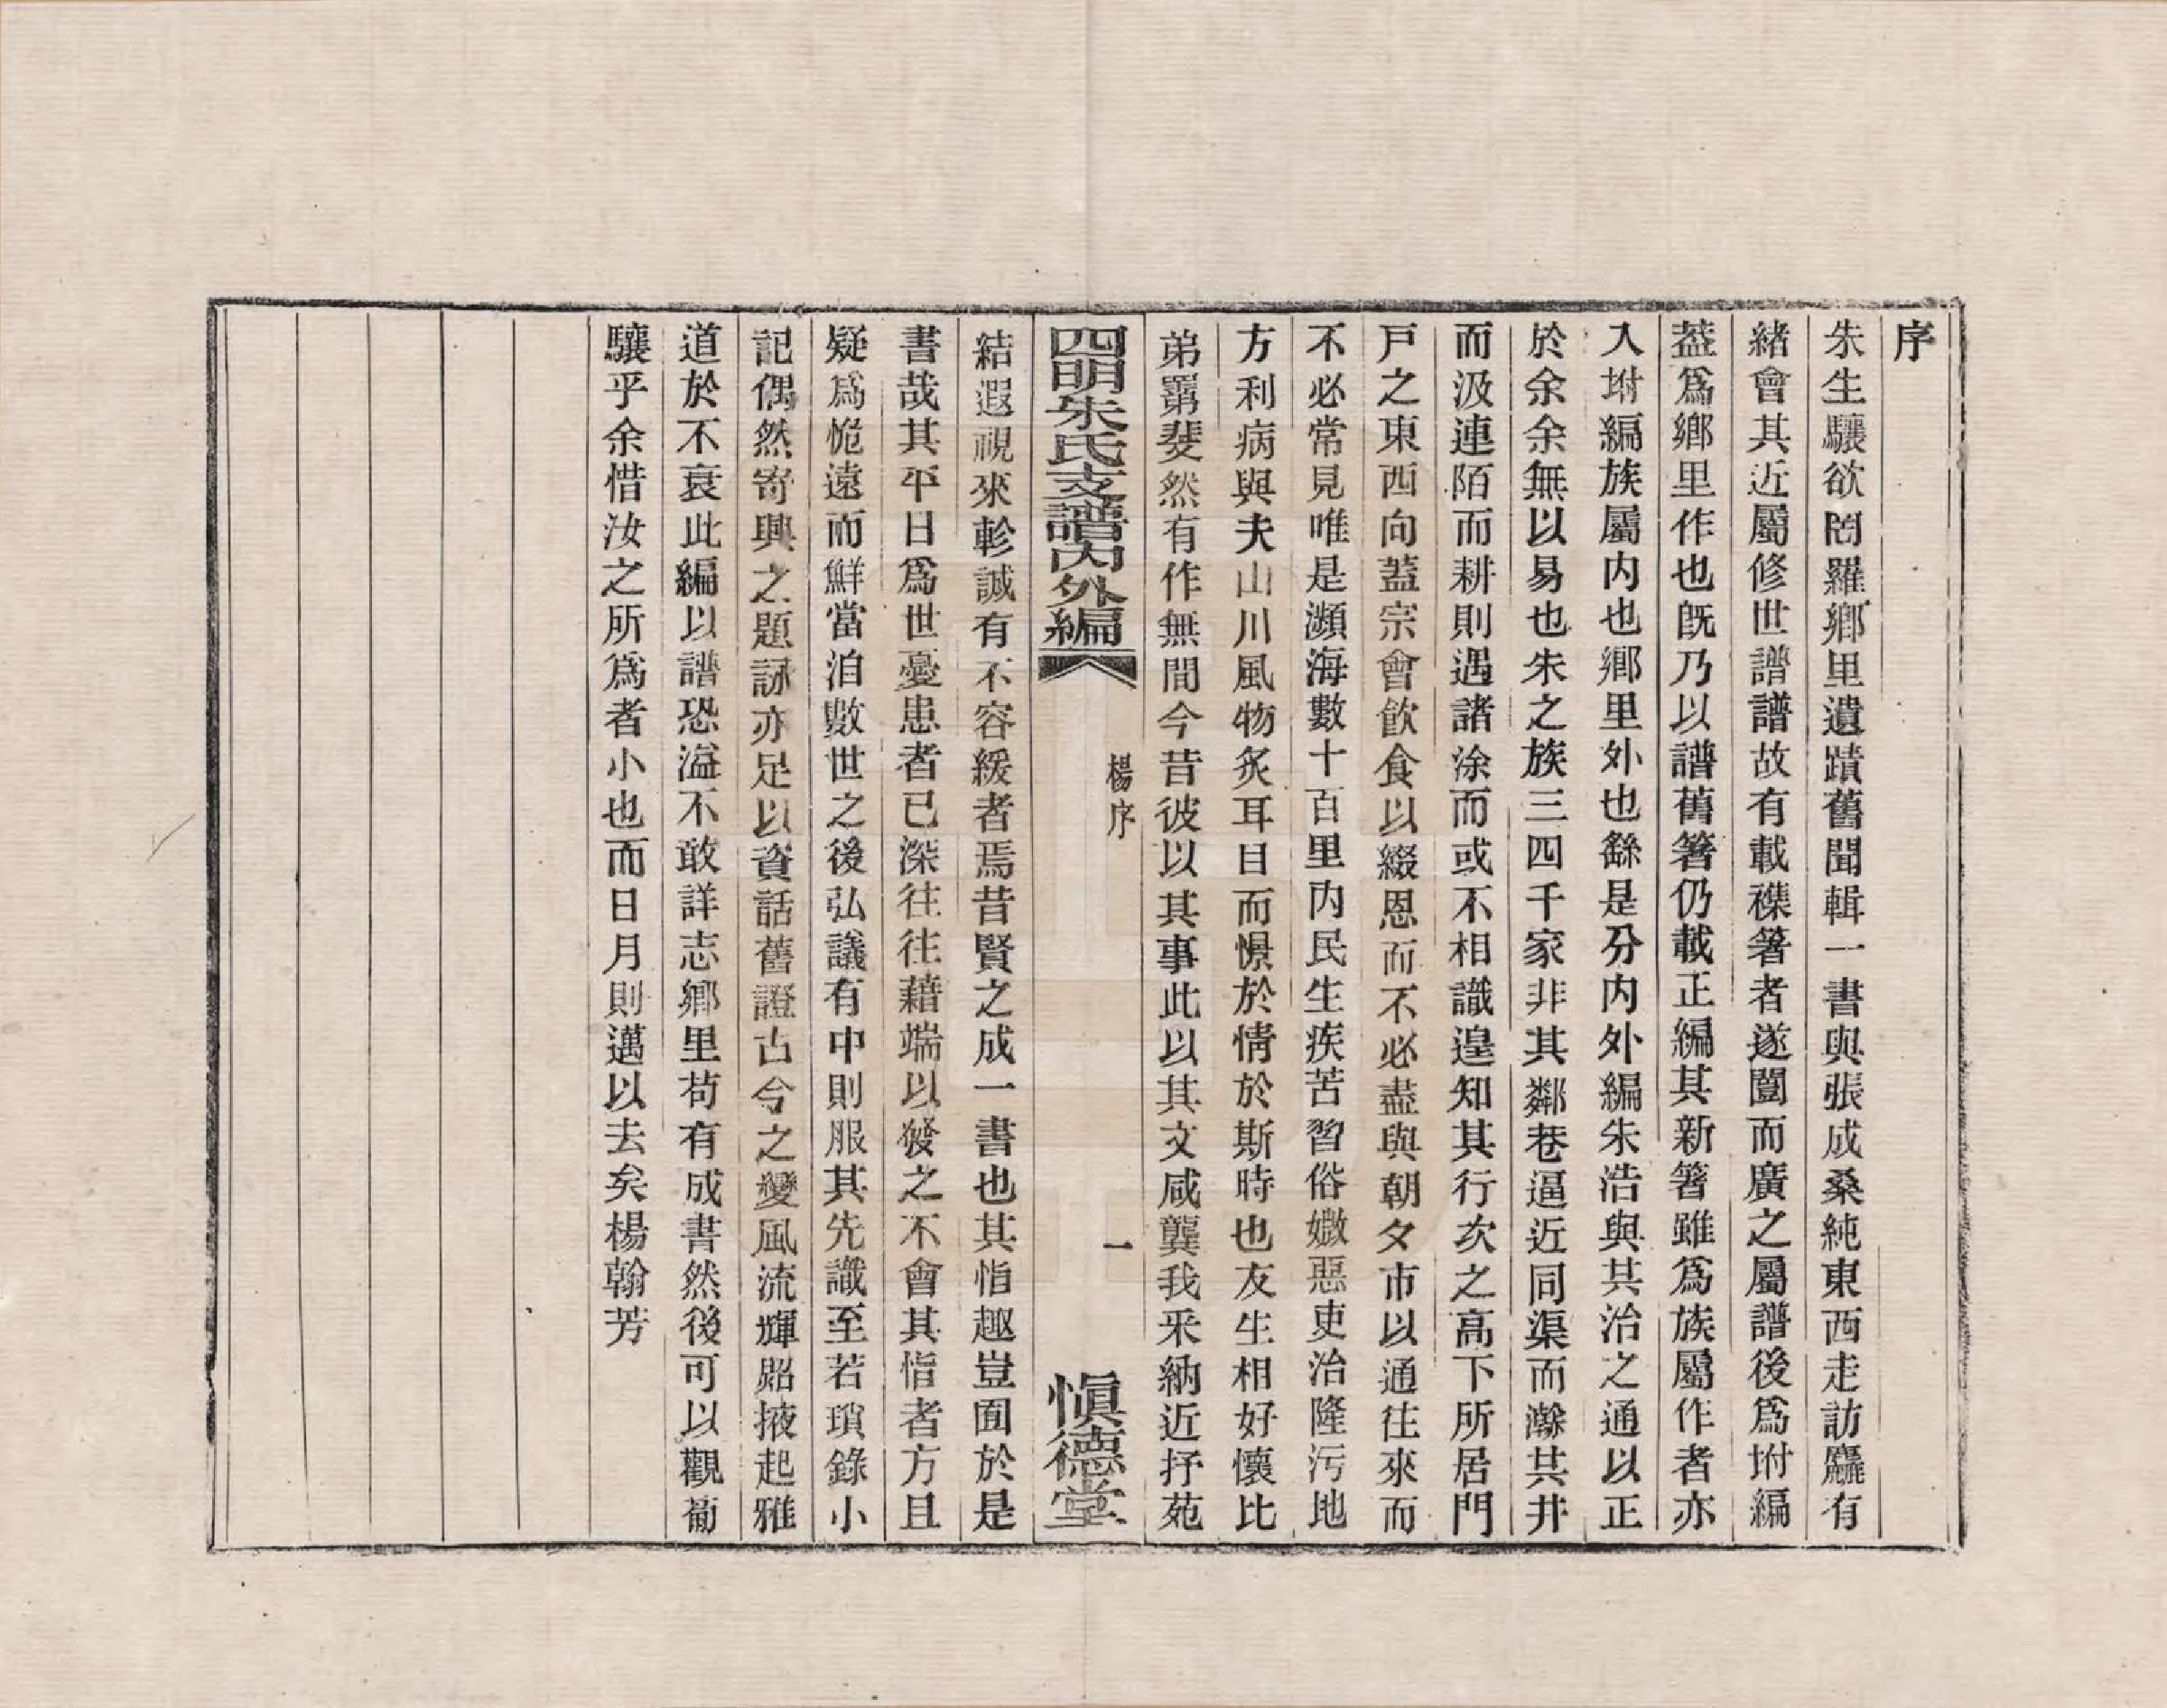 序
朱生驤欲罔羅鄉里遺蹟舊聞輯一書與張成桑純東西走訪麤有
緒會其近屬修世譜譜故有載襍箸者遂闓而廣之屬譜後爲坿編
葢爲鄉里作也旣乃以譜舊箸仍載正編其新箸雖爲族屬作者亦
入坿編族屬内也鄉里外也繇是分内外編朱浩與其治之通以正
於余余無以易也朱之族三四千家非其鄰巷逼近同渠而瀿其井
而汲連陌而耕則遇諸涂而或不相識遑知其行次之高下所居門
戸之東西向蓋宗會飮食以綴恩而不必盡與朝夕市以通往來而
不必常見唯是瀕海數十百里内民生疾苦習俗媺惡吏治隆污地
方利病與夫山川風物炙耳目而憬於情於斯時也友生相好懷比
弟羇斐然有作無間今昔彼以其事此以其文咸龔我采納近抒菀
四明朱氏支譜内外編
楊序
一
愼德堂
結遐視來軫誠有不容緩者焉昔賢之成一書也其恉趣豈囿於是
書哉其平日爲世憂患者已深往往藉端以發之不會其恉者方且
疑爲恑遠而鮮當洎數世之後弘議有中則服其先識至若瑣錄小
記偶然寄興之題詠亦足以資話舊證古今之變風流輝照掖起雅
道於不衰此編以譜恐溢不敢詳志鄉里苟有成書然後可以觀葡
驤乎余惜汝之所爲者小也而日月則邁以去矣楊翰芳